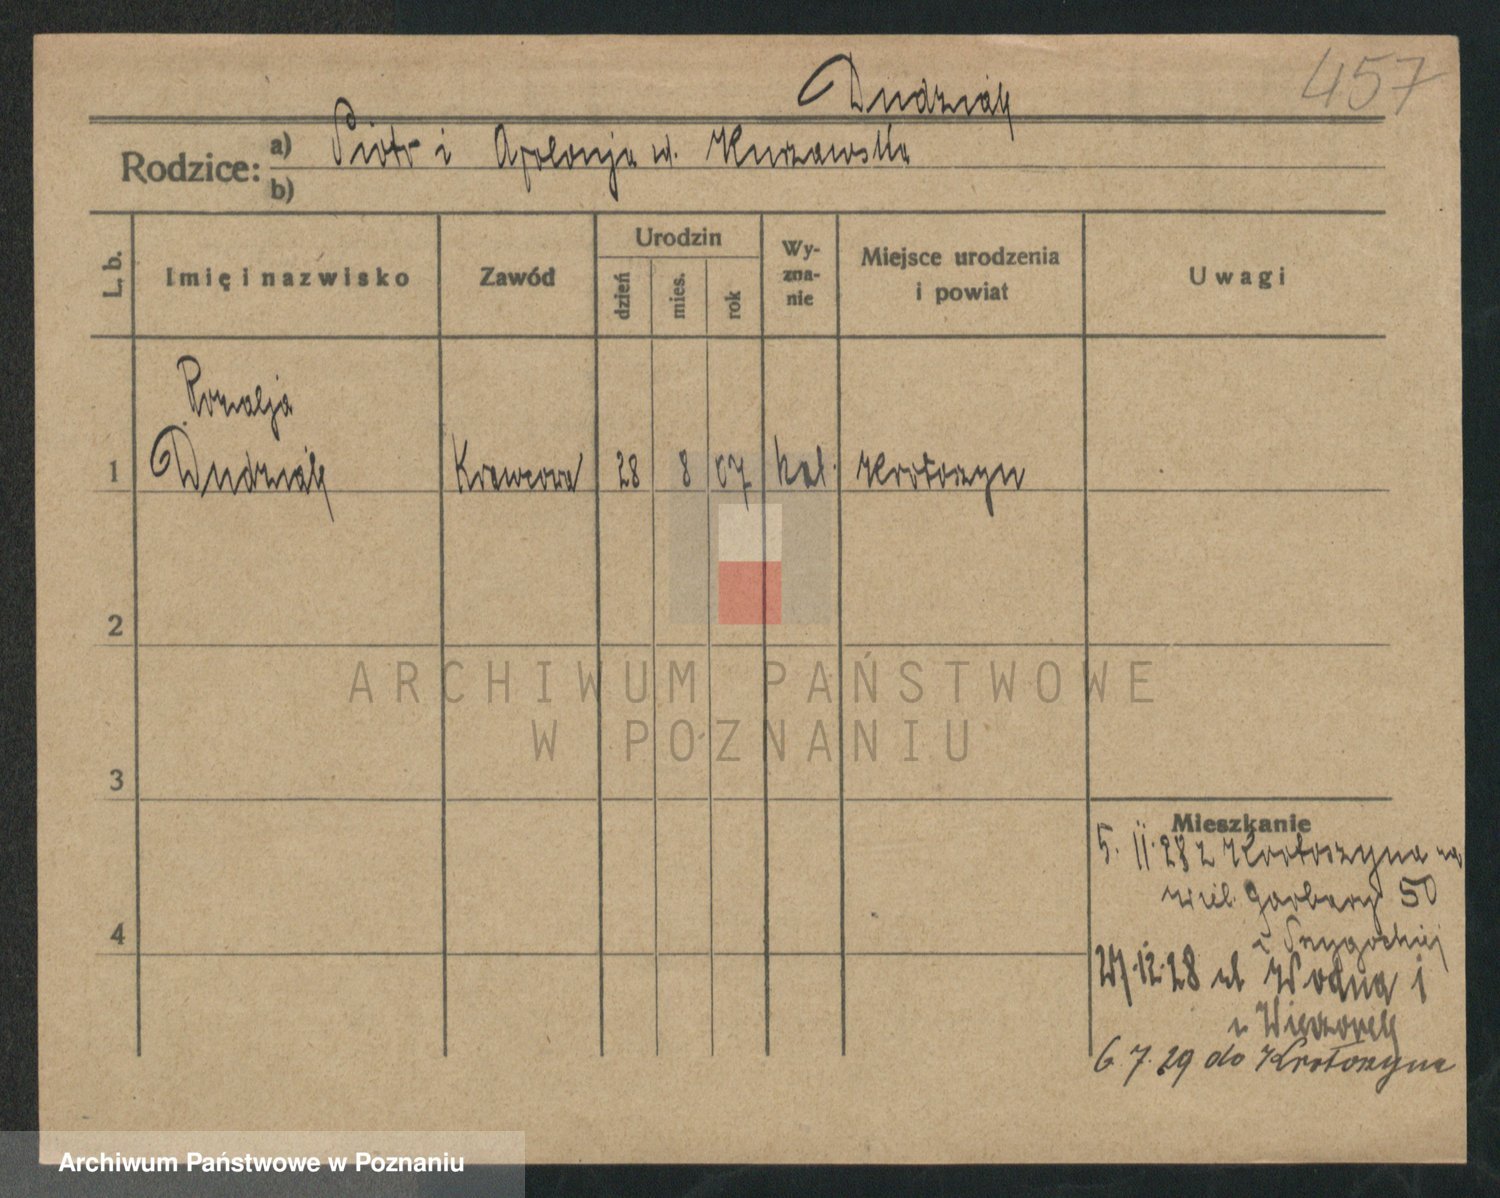 457
Dudziak
Rodzice: a) Piotr i Apolonja ur. Kurzawska
b)
L. b.
Imię i nazwisko
Zawód
Urodzin
dzień
mies.
rok
Wy-
zna-
nie
Miejsce urodzenia
i powiat
Uwagi
Rozalja
1 Dudziak Krawcowa 28 8 07 kat. Krotoszyn
2
ARCHIWUM PAŃSTWOWE
W POZNANIU
3
Mieszkanie
5. 11. 28 z Krotoszyna na
Garbary 50
4
27. 12. 28 ul Wodna 1
u Wieczorek
6. 7. 29 do Krotoszyna
Archiwum Państwowe w Poznaniu